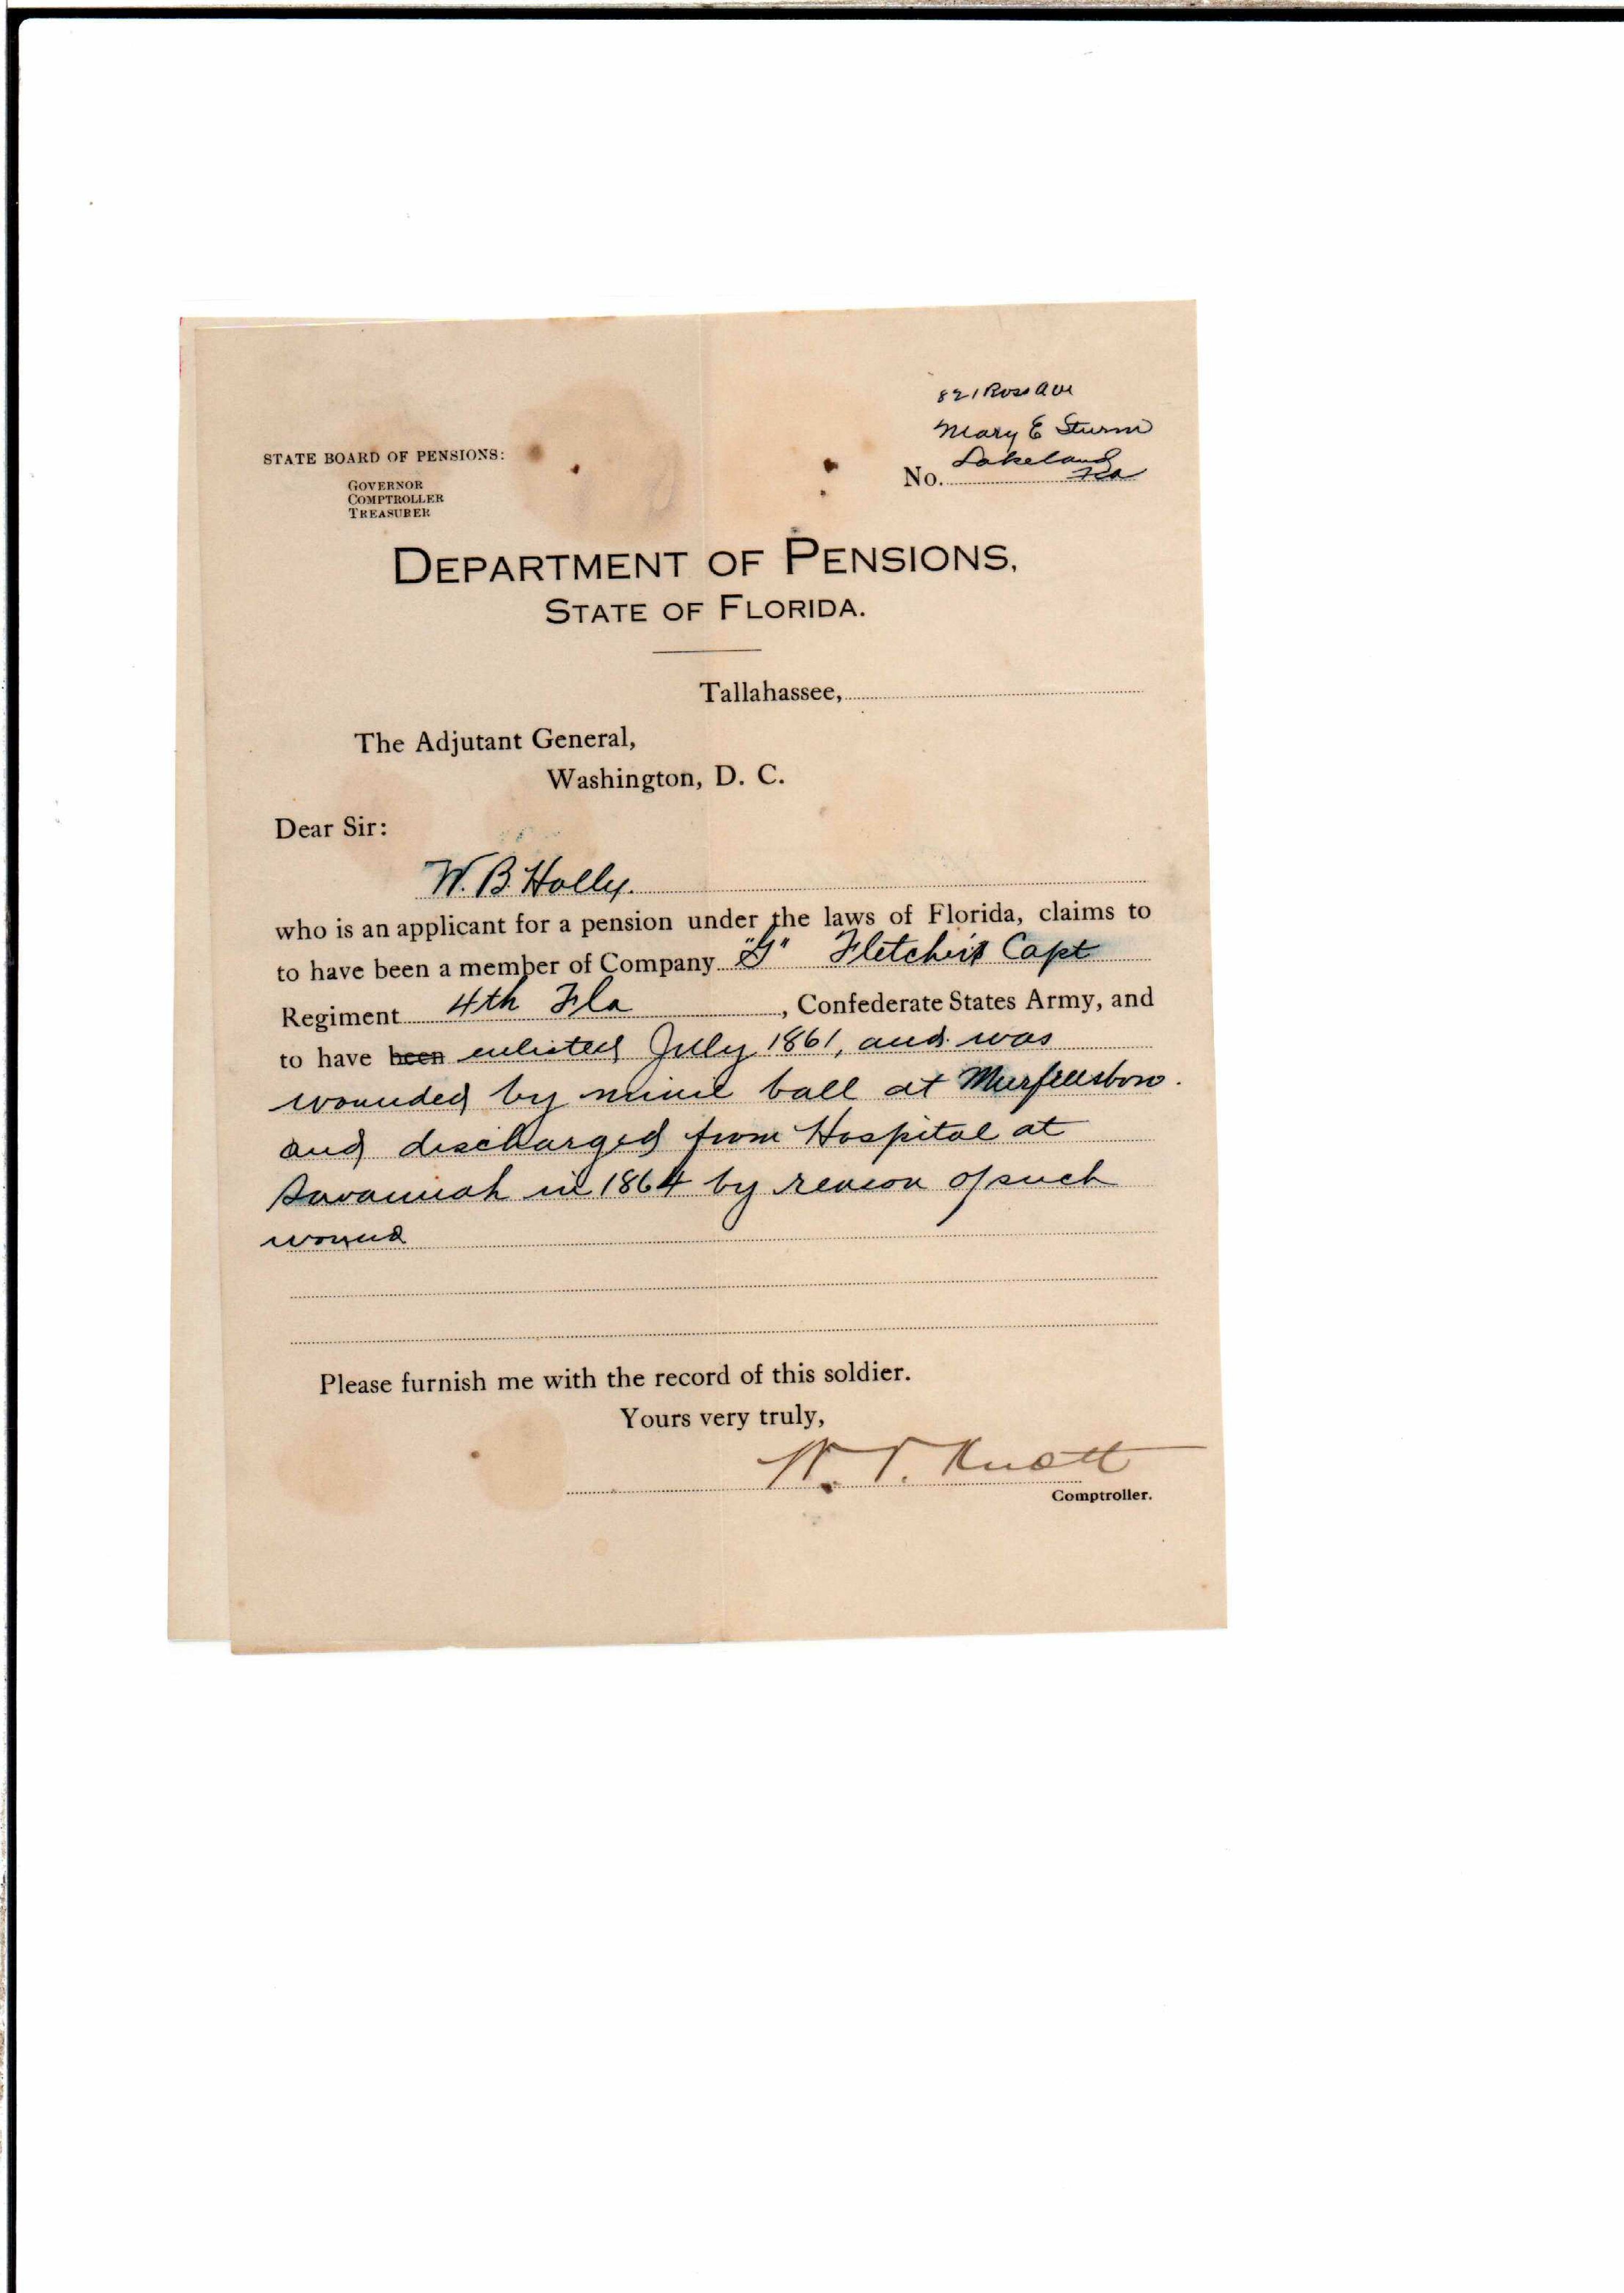 821 Ross Ave
Mary E Sturm
Lakeland
Fla
STATE BOARD OF PENSIONS:
GOVERNOR
COMPTROLLER
TREASURER
No.
DEPARTMENT OF PENSIONS,
STATE OF FLORIDA.
Tallahassee,
The Adjutant General,
Washington, D. C.
Dear Sir:
W. B. Holly.
who is an applicant for a pension under the laws of Florida, claims to
to have been a member of Company "G" Fletcher's Capt
Regiment 4th Fla , Confederate States Army, and
to have been enlisted July 1861, and was
wounded by minie ball at Murfeesboro.
and discharged from Hospital at
Savannah in 1864 by reason of such
wound
Please furnish me with the record of this soldier.
Yours very truly,
W. V. Knott
Comptroller.